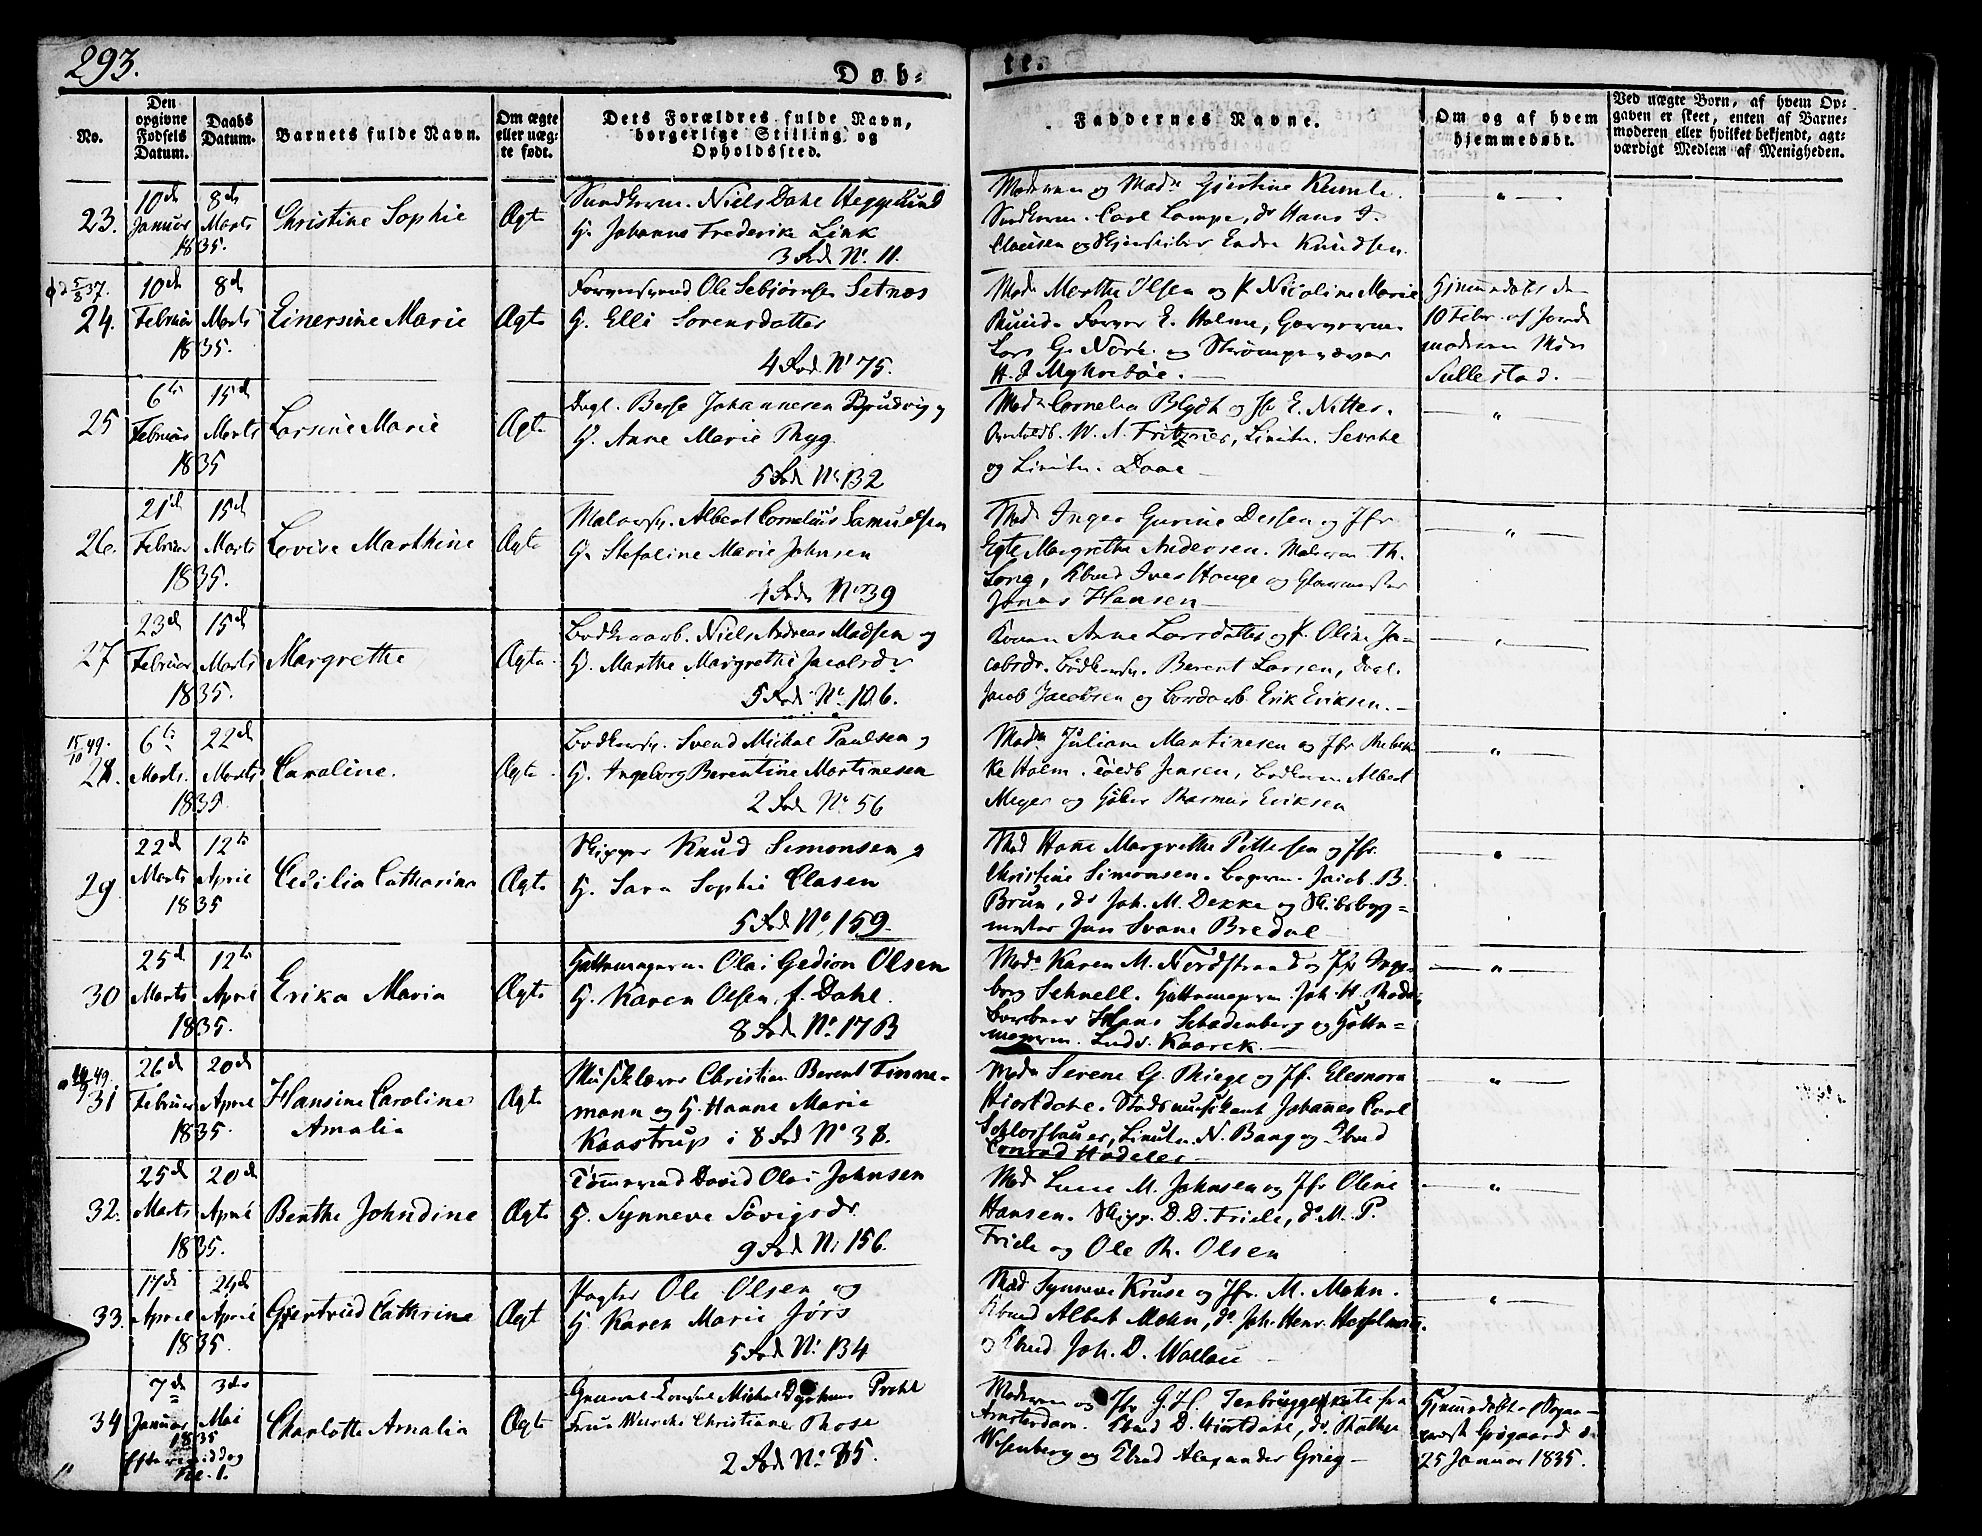 293.
Døb-
te.
No.
Den opgivne Fødsels Datum.
Daabs Datum.
Barnets fulde Navn.
Om ægte eller uægte født.
Dets Forældres fulde Navn, borgerlige Stilling og Opholdssted.
Faddernes Navne.
Om og af hvem hjemmedøbt.
Ved uægte Børn, af hvem Opgaven er skeet, enten af Barnemoderen eller hvilket bekjendt, agtværdigt Medlem af Menigheden.
23.
10de Januar 1835.
8de Marts
Christine Sophie
Ægte
Niels Dahl Heggelund
H. Johanne Frederike Link
3 Rod N. 11.
Moderen og Mad. Gjertine Rumle.
Carl Lampe, do Hans J.
Clausen og Endre Knudsen.
24.
10de Februar 1835.
8de Marts
Einersine Marie
Ægte
Ole Sebjørnsen Setnæs
H. Elli Sorensdatter
4 Rod N. 75.
Mad. Merthe Olsen og P. Nicoline Marie
Farver E. Holme,
Lars G. Nore og Strømpevæver
H. J. Myklebøe.
Hjemmedøbt den
10 Febr. af Jorde
moderen Mdm
Sullestad.
25
6te Februar 1835
15de Marts
Larsine Marie
Ægte
Dagl. Berje Johannesen Brudvig og
H. Anne Marie Thyg.
5 Rod N. 132
Mad. Cornelia Blydt og Jfr. E. Nitter.
W. A. Fritzner, Lieutn.
og Lieutn. Daae
26.
21de Februar 1835.
15de Marts
Lovise Marthine
Ægte
Malersv. Albert Cornelius Samuelsen
H. Stefaline Marie Johnsen
4 Rode N. 39
Mad. Inger Gurine Dessen og Jfr.
Egte Margrethe Andersen. Malerm. Th.
Long, Kbmd Iver Houge og Glarmester
Jonas Hansen
27
23de Februar 1835.
15de Marts
Margrethe
Ægte.
Bødkerarb. Niels Andreas Madsen og
H. Marthe Margrethe Jacobsdr
5 Rode N. 106.
Konen Anne Larsdatter og P. Oline Ja-
cobsdr. Bødkersv. Berent Larsen, Dagl.
Jacob Jacobsen og Bordarb Erik Eriksen.
28.
6te Marts. 1835
22de Marts
Caroline.
Ægte.
Bødkersv. Svend Michal Paulsen og
H. Ingeborg Berentine Martinesen
2 Rod N. 56
Mad. Juliane Martinesen og Jfr. Rebek
ke Holm. Jensen, Bødkerm. Albert
Meyer og Rasmus Eriksen
29
22de Marts 1835
12te April
Cecilia Catharina
Ægte
Skipper Knud Simonsen og
H. Sara Sophie Clasen
5 Rod N. 159.
Mad Hane Margrethe Pettersen og Jfr.
Christine Simonsen. Bagerm. Jacob B.
Brun, do Joh. M. Dekke og Skibsbyg-
mester Jan Svane Bredal
30
25de Marts 1835.
12te April
Erika Maria
Ægte
Hattemagerm. Olai Gedion Olsen
H. Karen Olsen f. Dahl.
8 Rod N. 17B
Mad. Karen M. Nordstrand og Jfr Inge-
borg Schnell. Hattemagerm. Joh. H. Rode,
Hans Schadenberg og Hatte-
magerm. Ludv. Kaarek.
31
26de Februar 1835.
20de April
Hansine Caroline
Amalia
Ægte
Musiklærer Christian Berent Finne-
mann og H. Hanne Marie
Kaastrup i 8 Rod N. 38.
Mad. Serene G. Riege og Jfr. Eleonora
Hiortdahl. Stadsmusikant Johannes Carl
Schlossbauer, Lieutn. N. Bang og Kbmd
Conrad Hødeler
32.
25de Marts 1835.
20de April
Benthe Johndine
Ægte
Tømmermd David Olai Johnsen
H. Synneve Sovigsdr.
9 Rod N. 156.
Mad Lene M. Johnsen og Jfr Oline
Hansen. Skipp. D. D. Friele, do M. P.
Friele og Ole R. Olsen
33.
17de April 1835
24de April
Gjertrud Cathrine
Ægte
Pagter Ole Olsen og
H. Karen Marie Jørs
5 Rod N. 134
Mad Synneve Kruse og Jfr. M. Mohn.
Kbmd Albert Mohn, do Joh. Henr. Hasselmann
og Kbmd Joh. D. Wallau
34
7de Januar 1835
Eftermiddag
Kl. 1.
3die Mai
Charlotte Amalia
Ægte
General Consul Michal Prehl
Frue Christiane Rose
2 Rod N.
Moderen og Jfr G. H. Tenbruggenkate fra
Amsterdam. Kbmd D. Hiortdahl, do Rathje
Wesenberg og Kbmd Alexander Grieg
Hjemmedøbt af Sogne-
præst Grøgaard d.
25 Januar 1835.